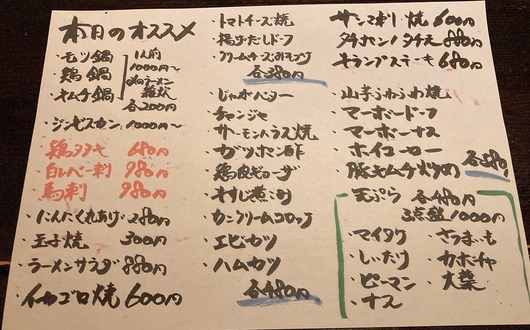 本日のオススメ
・モツ鍋
・鶏鍋
・キムチ鍋
1人前
1000円〜
〆のラーメン
雑炊
各200円
・ジンギスカン 1000円〜
・鶏タタキ 680円
・白レバー刺 980円
・馬刺 980円
・にんにくあげ 280円
・玉子焼 300円
・ラーメンサラダ 880円
・イカゴロ焼 600円
・トマトチーズ焼
・揚げだしドーフ
・クリームチーズみそづけ
各380円
・じゃがバター
・チャンジャ
・サーモンハラス焼
・ガツポン酢
・鶏皮ギョーザ
・牛すじ煮こみ
・カニクリームコロッケ
・エビカツ
・ハムカツ
各480円
サンマ刺し 焼 600円
タチポン/タチ天 880円
牛ランプステーキ 680円
・山芋ふわふわ焼
・マーボードーフ
・マーボーナス
・ホイコーロー
・豚キムチ炒め
各580円
・天ぷら 各480円
3点盛1000円
・マイタケ
・さつまいも
・しいたけ
・カボチャ
・ピーマン
・大葉
・ナス